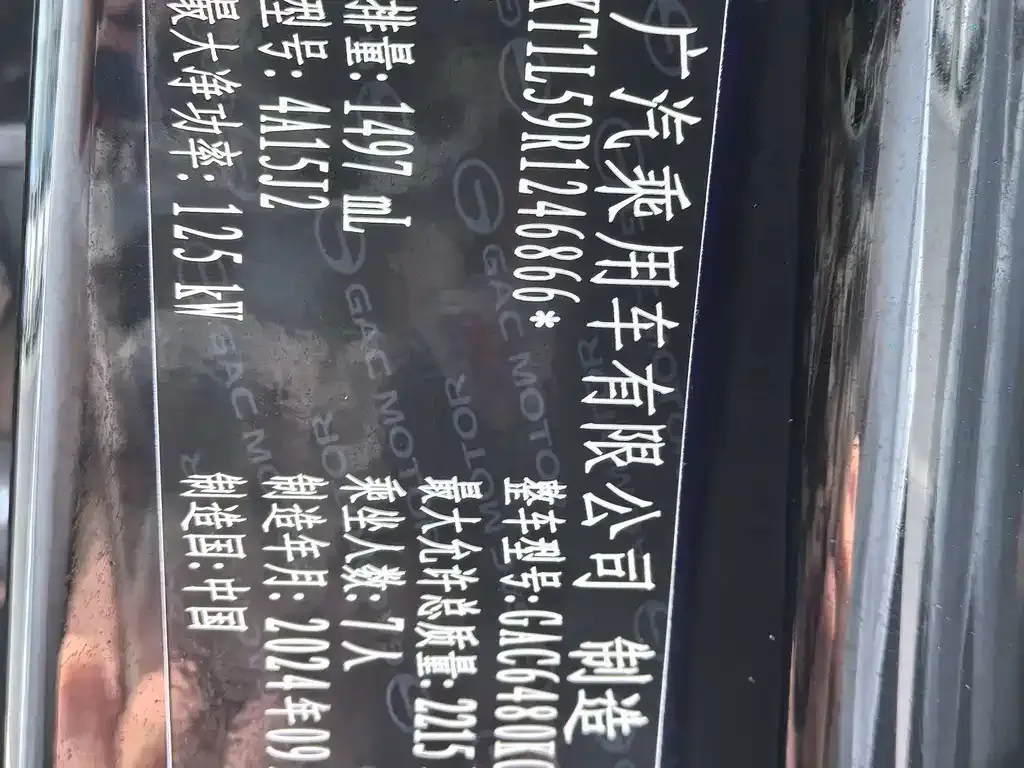 广汽乘用车有限公司 制造
KT1L59R124686*
整车型号:GAC6480K
最大允许总质量:2215
排量: 1497 mL
乘坐人数: 7人
型号: 4A15J2
制造年月: 2024年09
最大净功率: 125 kW
制造国: 中国
GAC MOTOR
GAC MOTOR
GAC M